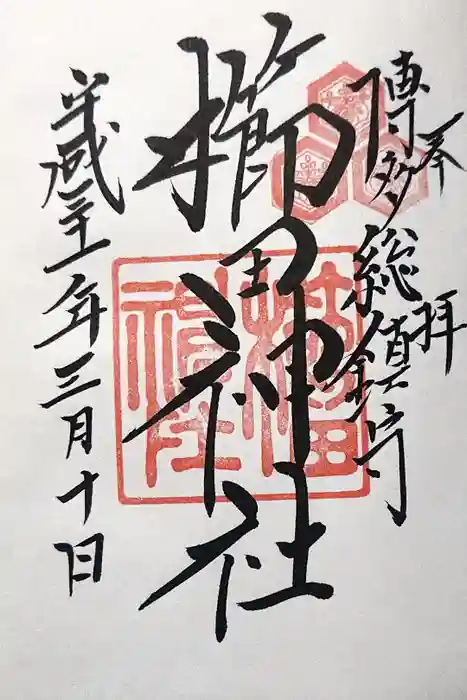 奉拝
博多総鎮守
櫛田神社
平成三十一年三月十日
櫛田
神社